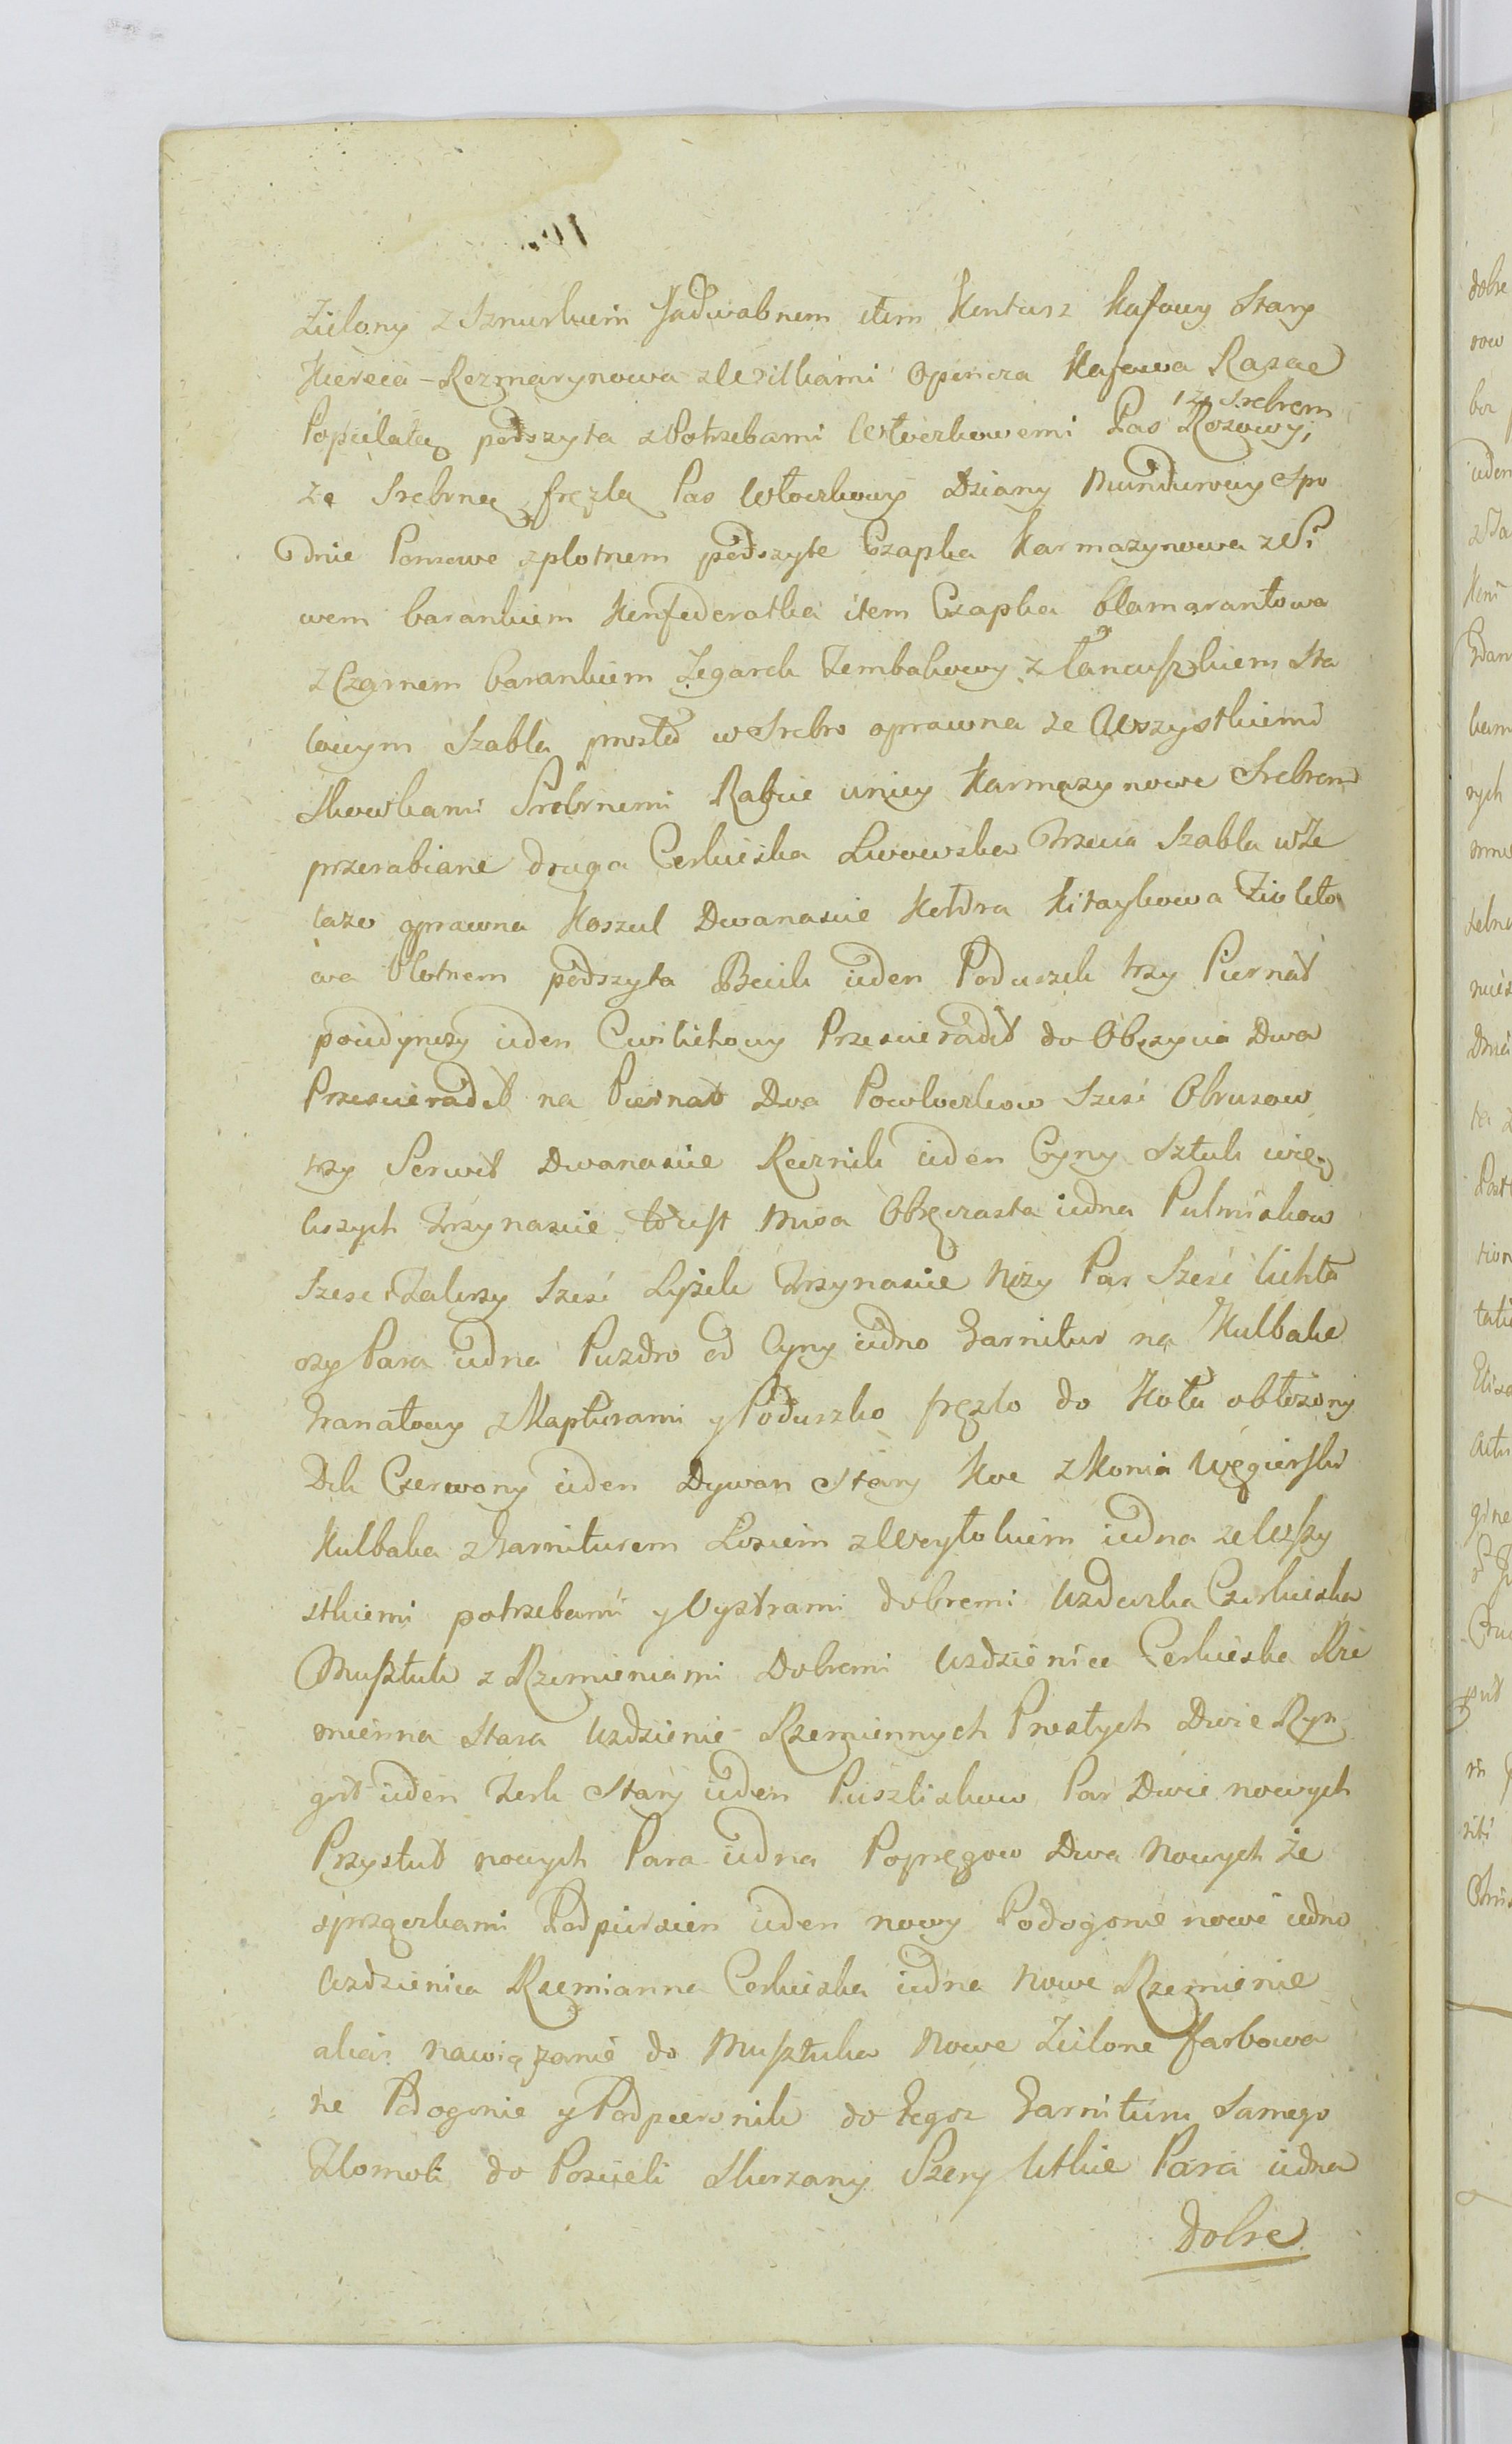 Zielony z Sznurkiem Jadwabnem item Kontusz kafowy Stary
Kiereia Rozmarynowa z Opończa Kafowa
Popielatą podszyta z Potrzebami Włoczkowemi Pas Rożowy,
ze Srebrem
ze Srebrną fręzlą Pas Włoczkowy Dziany Mundurowy Spo
dnie Ponsowe z plotnem podszyte Czapka Karmazynowa z Si
wem barankiem Konfederatka item Czapka blamarantowa
z Czarnem barankiem Zegarek Tombakowy z Łancuszkiem Sta
lowym Szabla prosta w Srebro oprawna ze Wszystkiemi
Skowkami Srebrnemi Rapcie Karmazynowe Srebrem
przerabiane druga Cerkieska Lwowska trzecia Szabla w Że
lazo oprawna Koszul Dwanascie Kołdra Kitaykowa Zioleto
wa Plotnem podszyta Becik ieden Poduszek trzy Piernat
poiedynczy ieden Cwilichowy Przescieradeł do Obszycia Dwa
Przescieradeł na Piernat Dwa Powłoczkow Szesć Obrusow
trzy Serwet Dwanascie Recznik ieden Cyny Sztuk więg
kszych Trzynascie Misa Obręczasta iedna Pułmiskow
Szesc Talerzy Szesć Łyżek Trzynascie Noży Par Szesć lichta
rzy Para iedna Puzdro od Cyny iedno Garnitur na Kulbake
Granatowy z Kapturami y Poduszko fręzlo do Koła obłożony
Dek Czerwony ieden Dywan Stary Koc z Konia Węgierska
Kulbaka z Garniturem Łosiem z Weytokiem iedna ze Wszy
stkiemi potrzebami y Uystrami dobremi Uzdeczka Czerkieska
Musztuk z Rzemieniami Dobremi Uzdzienica Cerkieska Rze
mienna Stara Uzdzienic Rzemiennych Prostych Dwie Ryn
gort ieden Terk Stary ieden Puszliskow Par Dwie nowych
Przystuł nowych Para iedna Popręgow Dwa Nowych że
sprzączkami Podpiersien ieden nowy Podogonie nowe iedno
Uzdzienica Rzemianna Cerkieska iedna Nowe Rzemienie
alias nawiązanie do Musztuka Nowe Zielone farbowa
ne Podogonie y Podpiersnik do tegoz Garnituru Samego
Tłomok do Poscieli Skorzany Szery letkie Para iedna
Dobre